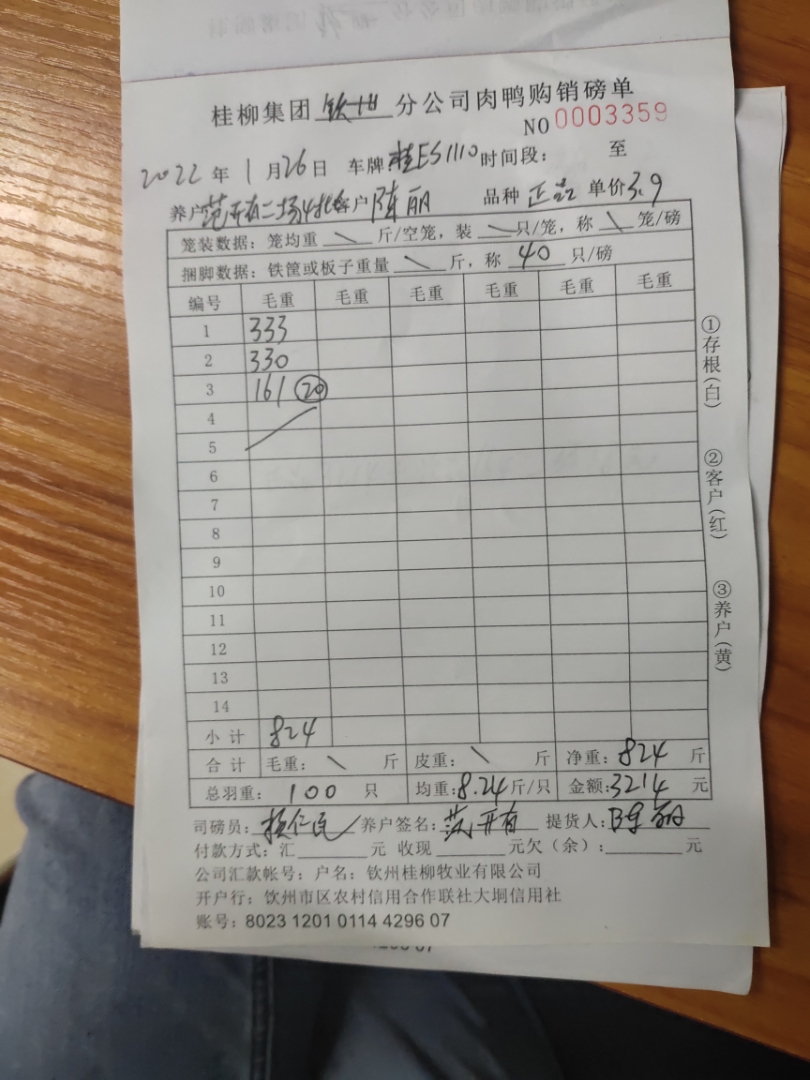 桂柳集团 钦州 分公司肉鸭购销磅单
NO 0003359
2022 年 1 月 26 日 车牌 桂ES1110 时间段： 至
养户 范开有二场4批 客户 陈丽 品种 正品 单价 3.9
笼装数据：笼均重 \ 斤/空笼，装 \ 只/笼，称 \ 笼/磅
捆脚数据：铁筐或板子重量 \ 斤，称 40 只/磅
编号 毛重 毛重 毛重 毛重 毛重 毛重
1 333
2 330
3 161 20
4
5
6
7
8
9
10
11
12
13
14
小计 824
合计 毛重： \ 斤 皮重： \ 斤 净重：824 斤
总羽重： 100 只 均重：8.24 斤/只 金额：3214 元
司磅员： 养户签名：范开有 提货人：陈丽
付款方式：汇 元 收现 元欠（余）： 元
公司汇款帐号：户名：钦州桂柳牧业有限公司
开户行：钦州市区农村信用合作联社大垌信用社
账号：8023 1201 0114 4296 07
①存根（白）
②客户（红）
③养户（黄）